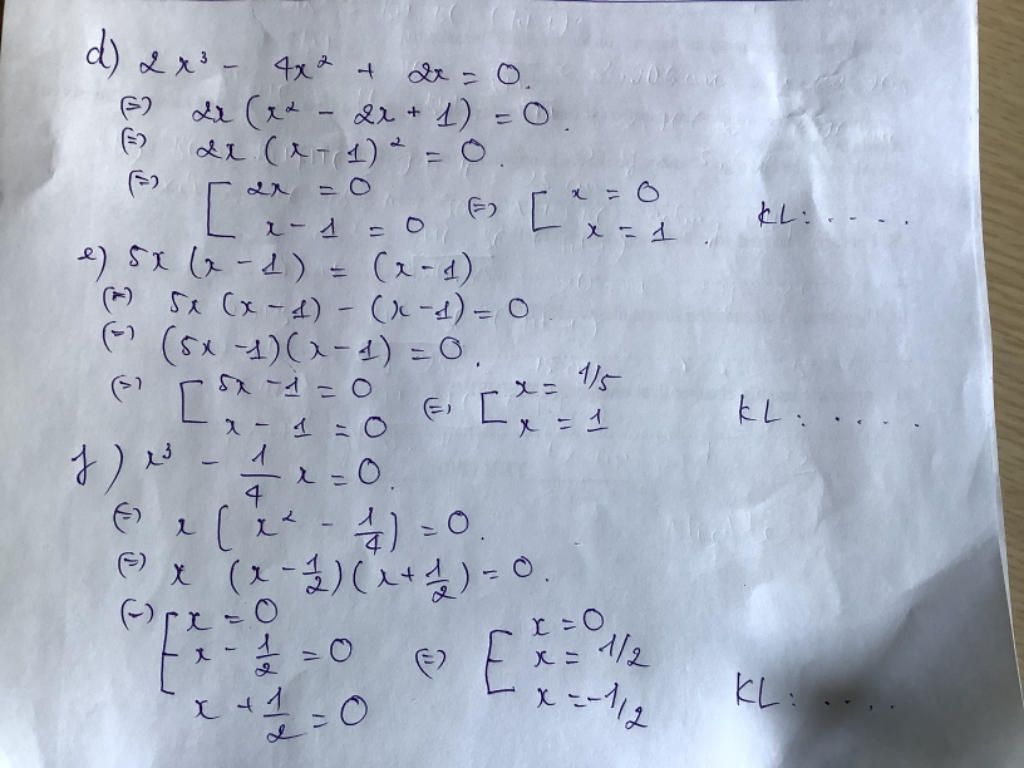 d) 2x³ - 4x² + 2x = 0.
(=) 2x (x² - 2x + 1) = 0.
(=) 2x (x - 1)² = 0.
(=) [ 2x = 0 (=) [ x = 0
x - 1 = 0 x = 1. KL: ....
e) 5x (x - 1) = (x - 1)
(=) 5x (x - 1) - (x - 1) = 0.
(=) (5x - 1)(x - 1) = 0.
(=) [ 5x - 1 = 0 (=) [ x = 1/5
x - 1 = 0 x = 1 KL: ....
f) x³ - 1/4 x = 0.
(=) x [ x² - 1/4 ) = 0.
(=) x (x - 1/2)(x + 1/2) = 0.
(=) [ x = 0 [ x = 0
x - 1/2 = 0 (=) x = 1/2
x + 1/2 = 0 x = -1/2 KL: ....